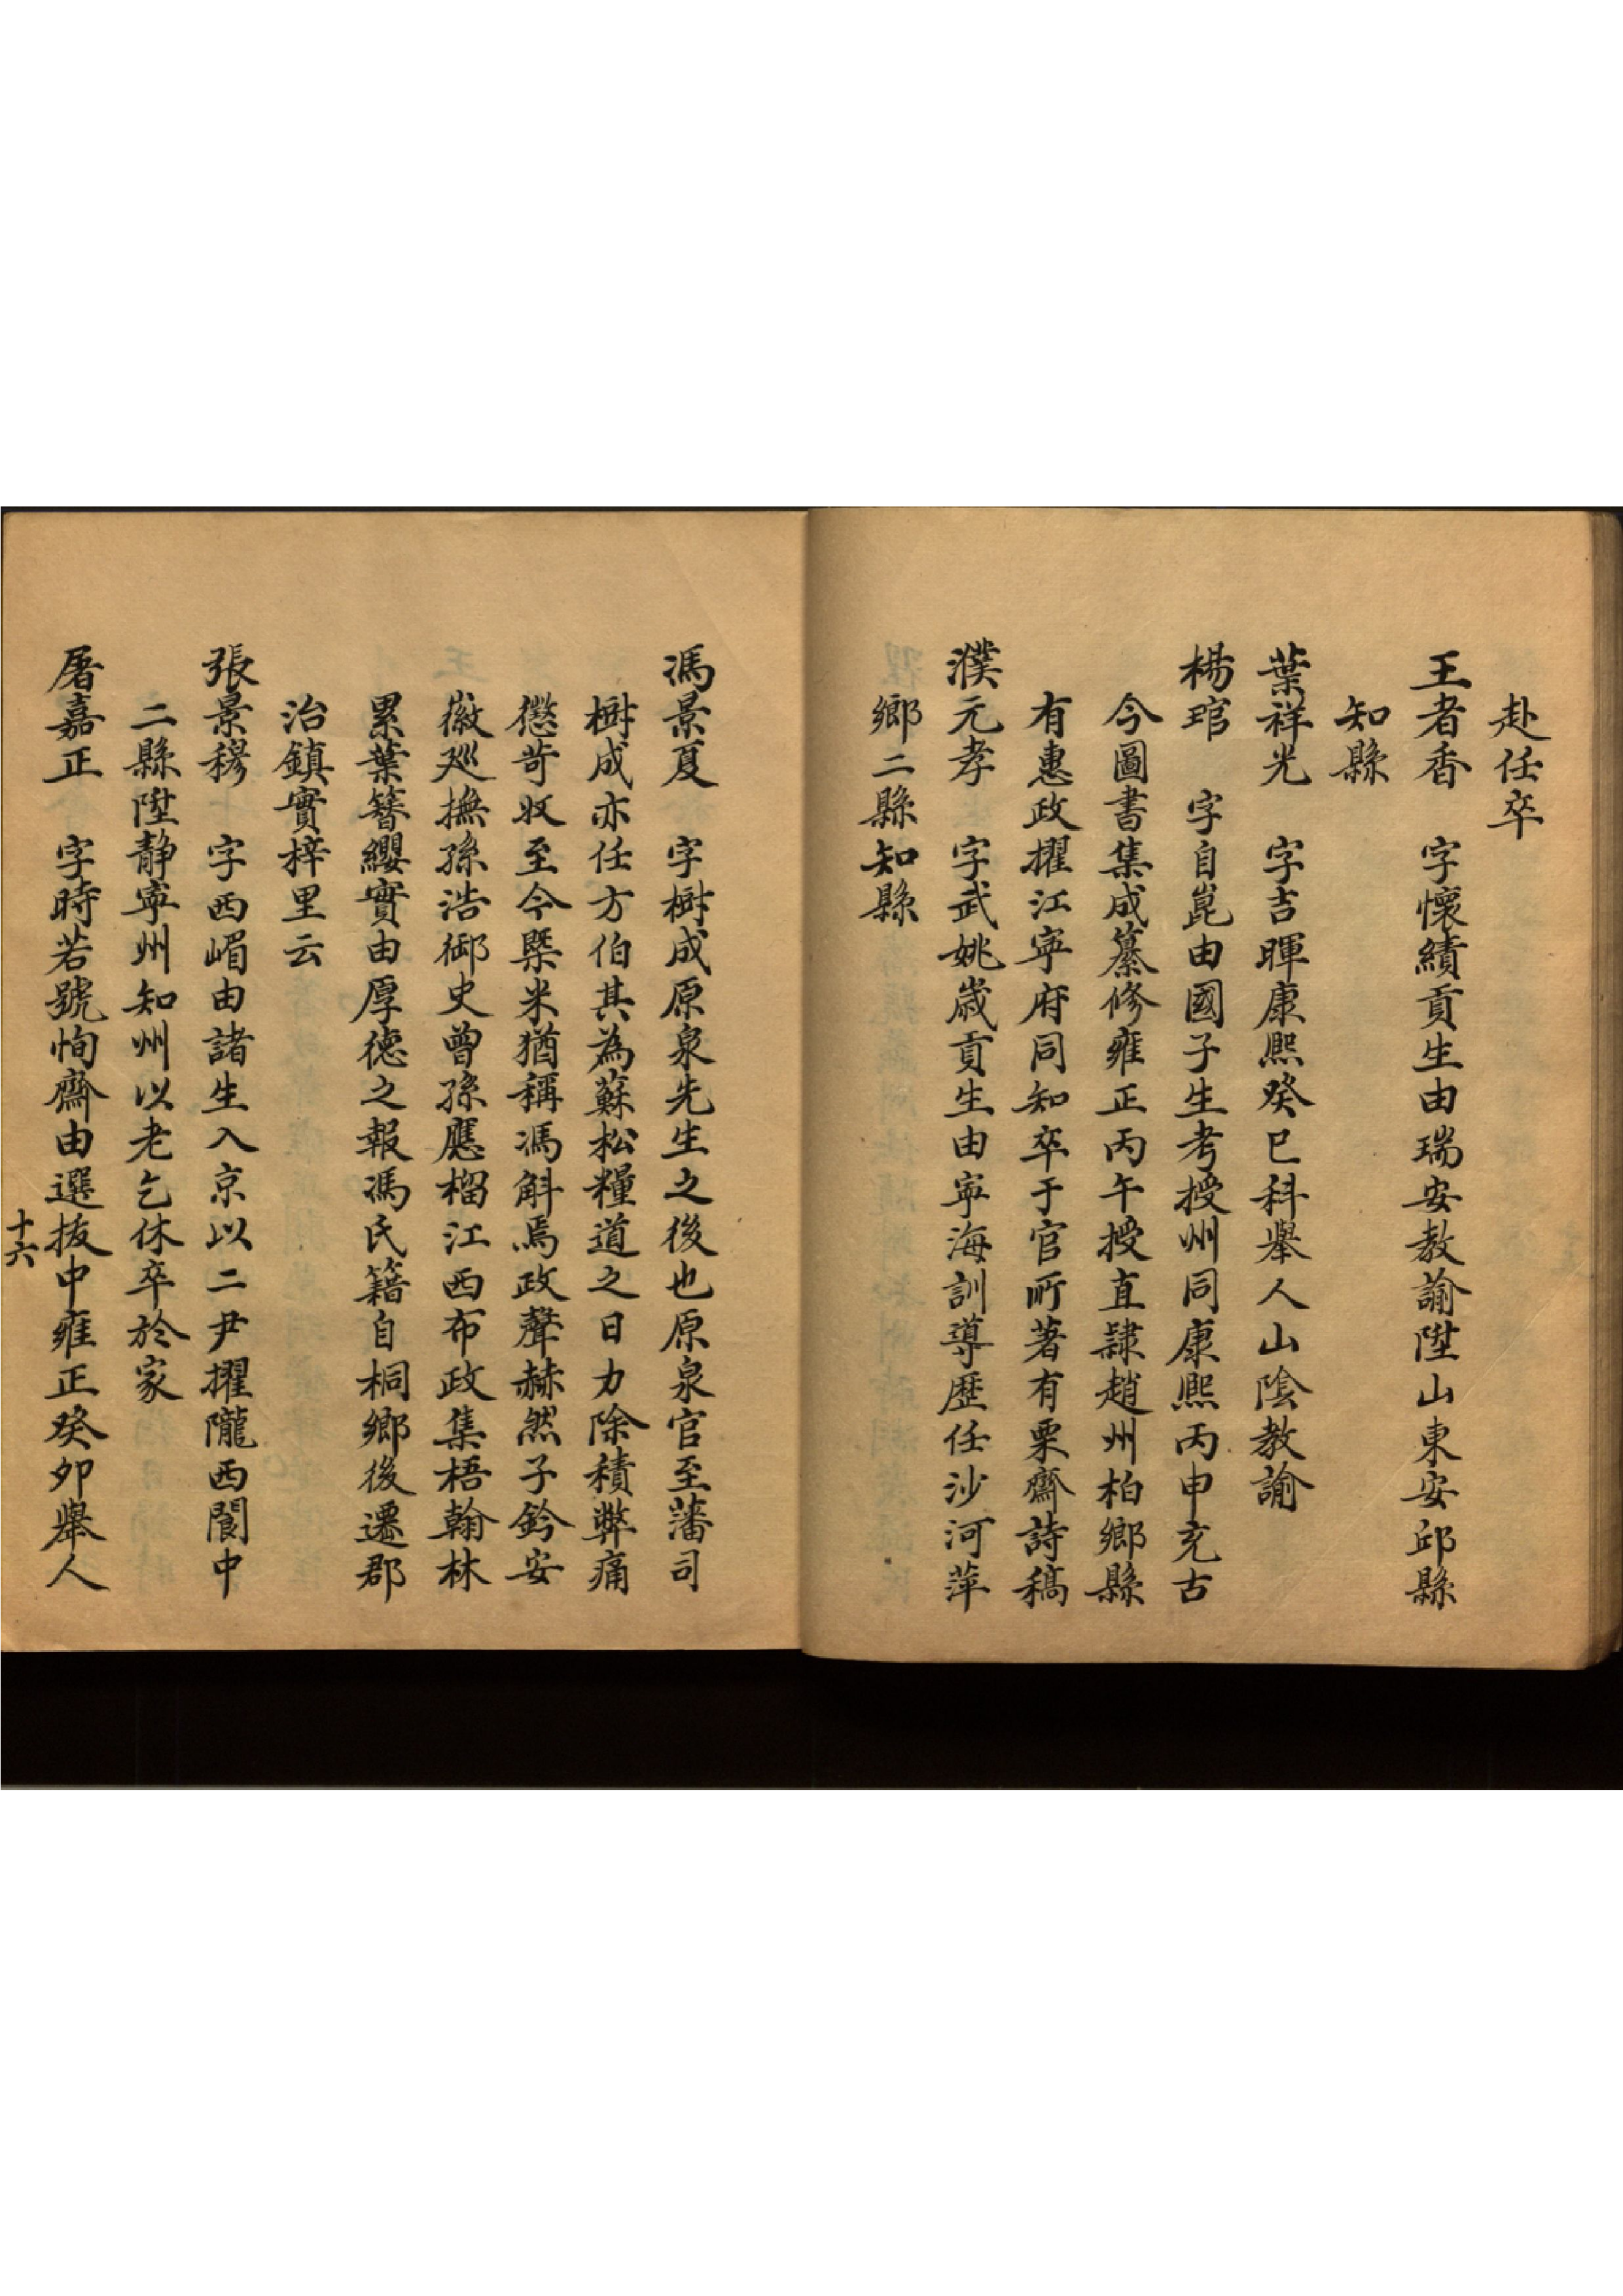 赴任卒
王者香　字懷績貢生由瑞安教諭陞山東安邱縣
知縣
葉祥光　字吉暉康熙癸巳科舉人山陰教諭
楊琯　字自崑由國子生考授州同康熙丙申充古
今圖書集成纂修雍正丙午授直隸趙州柏鄉縣
有惠政擢江寧府同知卒于官所著有栗齋詩稿
濮元孝　字武姚歲貢生由寧海訓導歷任沙河萍
鄉二縣知縣
馮景夏　字樹成原泉先生之後也原泉官至藩司
樹成亦任方伯其為蘇松糧道之日力除積弊痛
懲苛收至今槩米猶稱馮斛焉政聲赫然子鈐安
徽廵撫孫浩御史曾孫應榴江西布政集梧翰林
累葉簪纓實由厚德之報馮氏籍自桐鄉後遷郡
治鎮實梓里云
張景穆　字西嵋由諸生入京以二尹擢隴西閬中
二縣陞靜寧州知州以老乞休卒於家
屠嘉正　字時若號恂齋由選拔中雍正癸卯舉人
十六